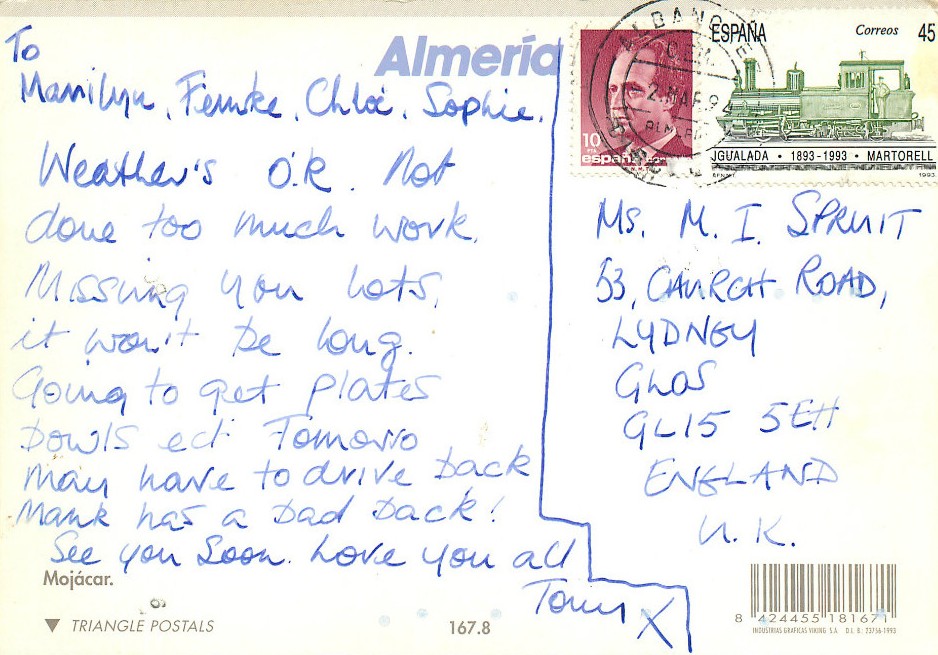 To
Almería
Marilyn, Femke, Chloé, Sophie.
Weather's O.K. Not
done too much work.
Missing you lots,
it won't be long.
Going to get plates
bowls ect Tomorro
may have to drive back
Mark has a bad back!
See you Soon. Love you all
Tony X
Mojácar.
▼ TRIANGLE POSTALS
167.8
10
PTA
españa correos
ESPAÑA Correos 45
IGUALADA • 1893-1993 • MARTORELL
1993
Ms. M. I. SPRUIT
53, CHURCH ROAD,
LYDNEY
GLOS
GL15 5EH
ENGLAND
U.K.
8 424455 181671
INDUSTRIAS GRAFICAS VIKING S.A. D.L. B. 23756-1993